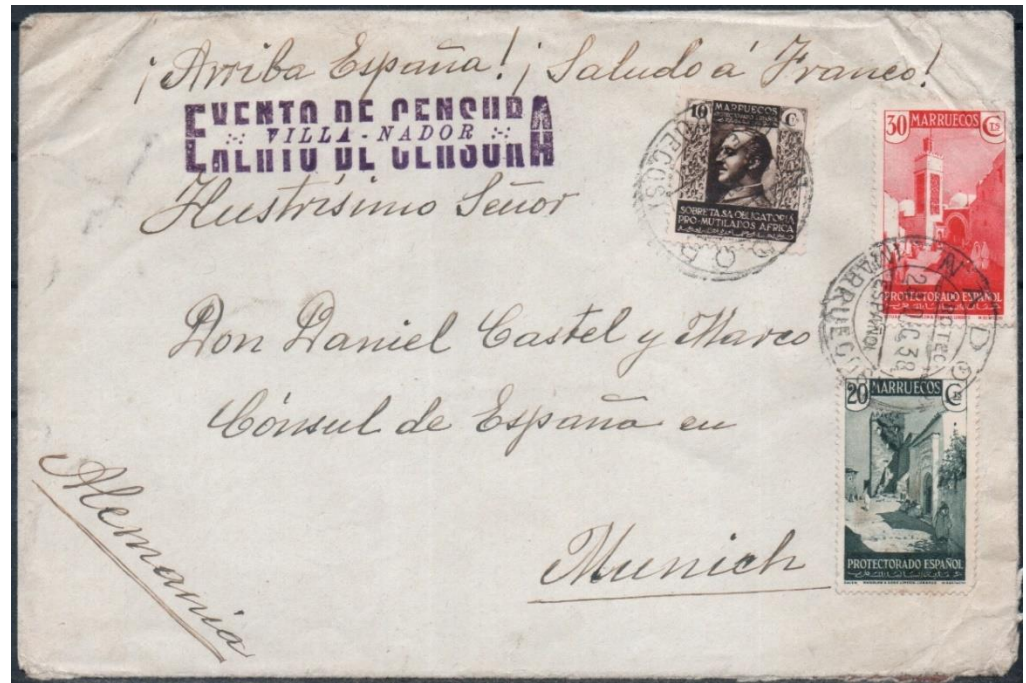 ¡Arriba España! ¡Saludo á Franco!
EXENTO DE CENSURA
VILLA-NADOR
EXENTO DE CENSURA
Ilustrísimo Señor
Don Daniel Castel y Marco
Cónsul de España en
Munich
Alemania
10 MARRUECOS Cs
SOBRETASA OBLIGATORIA
PRO-MUTILADOS AFRICA
30 MARRUECOS CTS
PROTECTORADO ESPAÑOL
NADOR
MARRUECOS
20 MARRUECOS CTS
PROTECTORADO ESPAÑOL